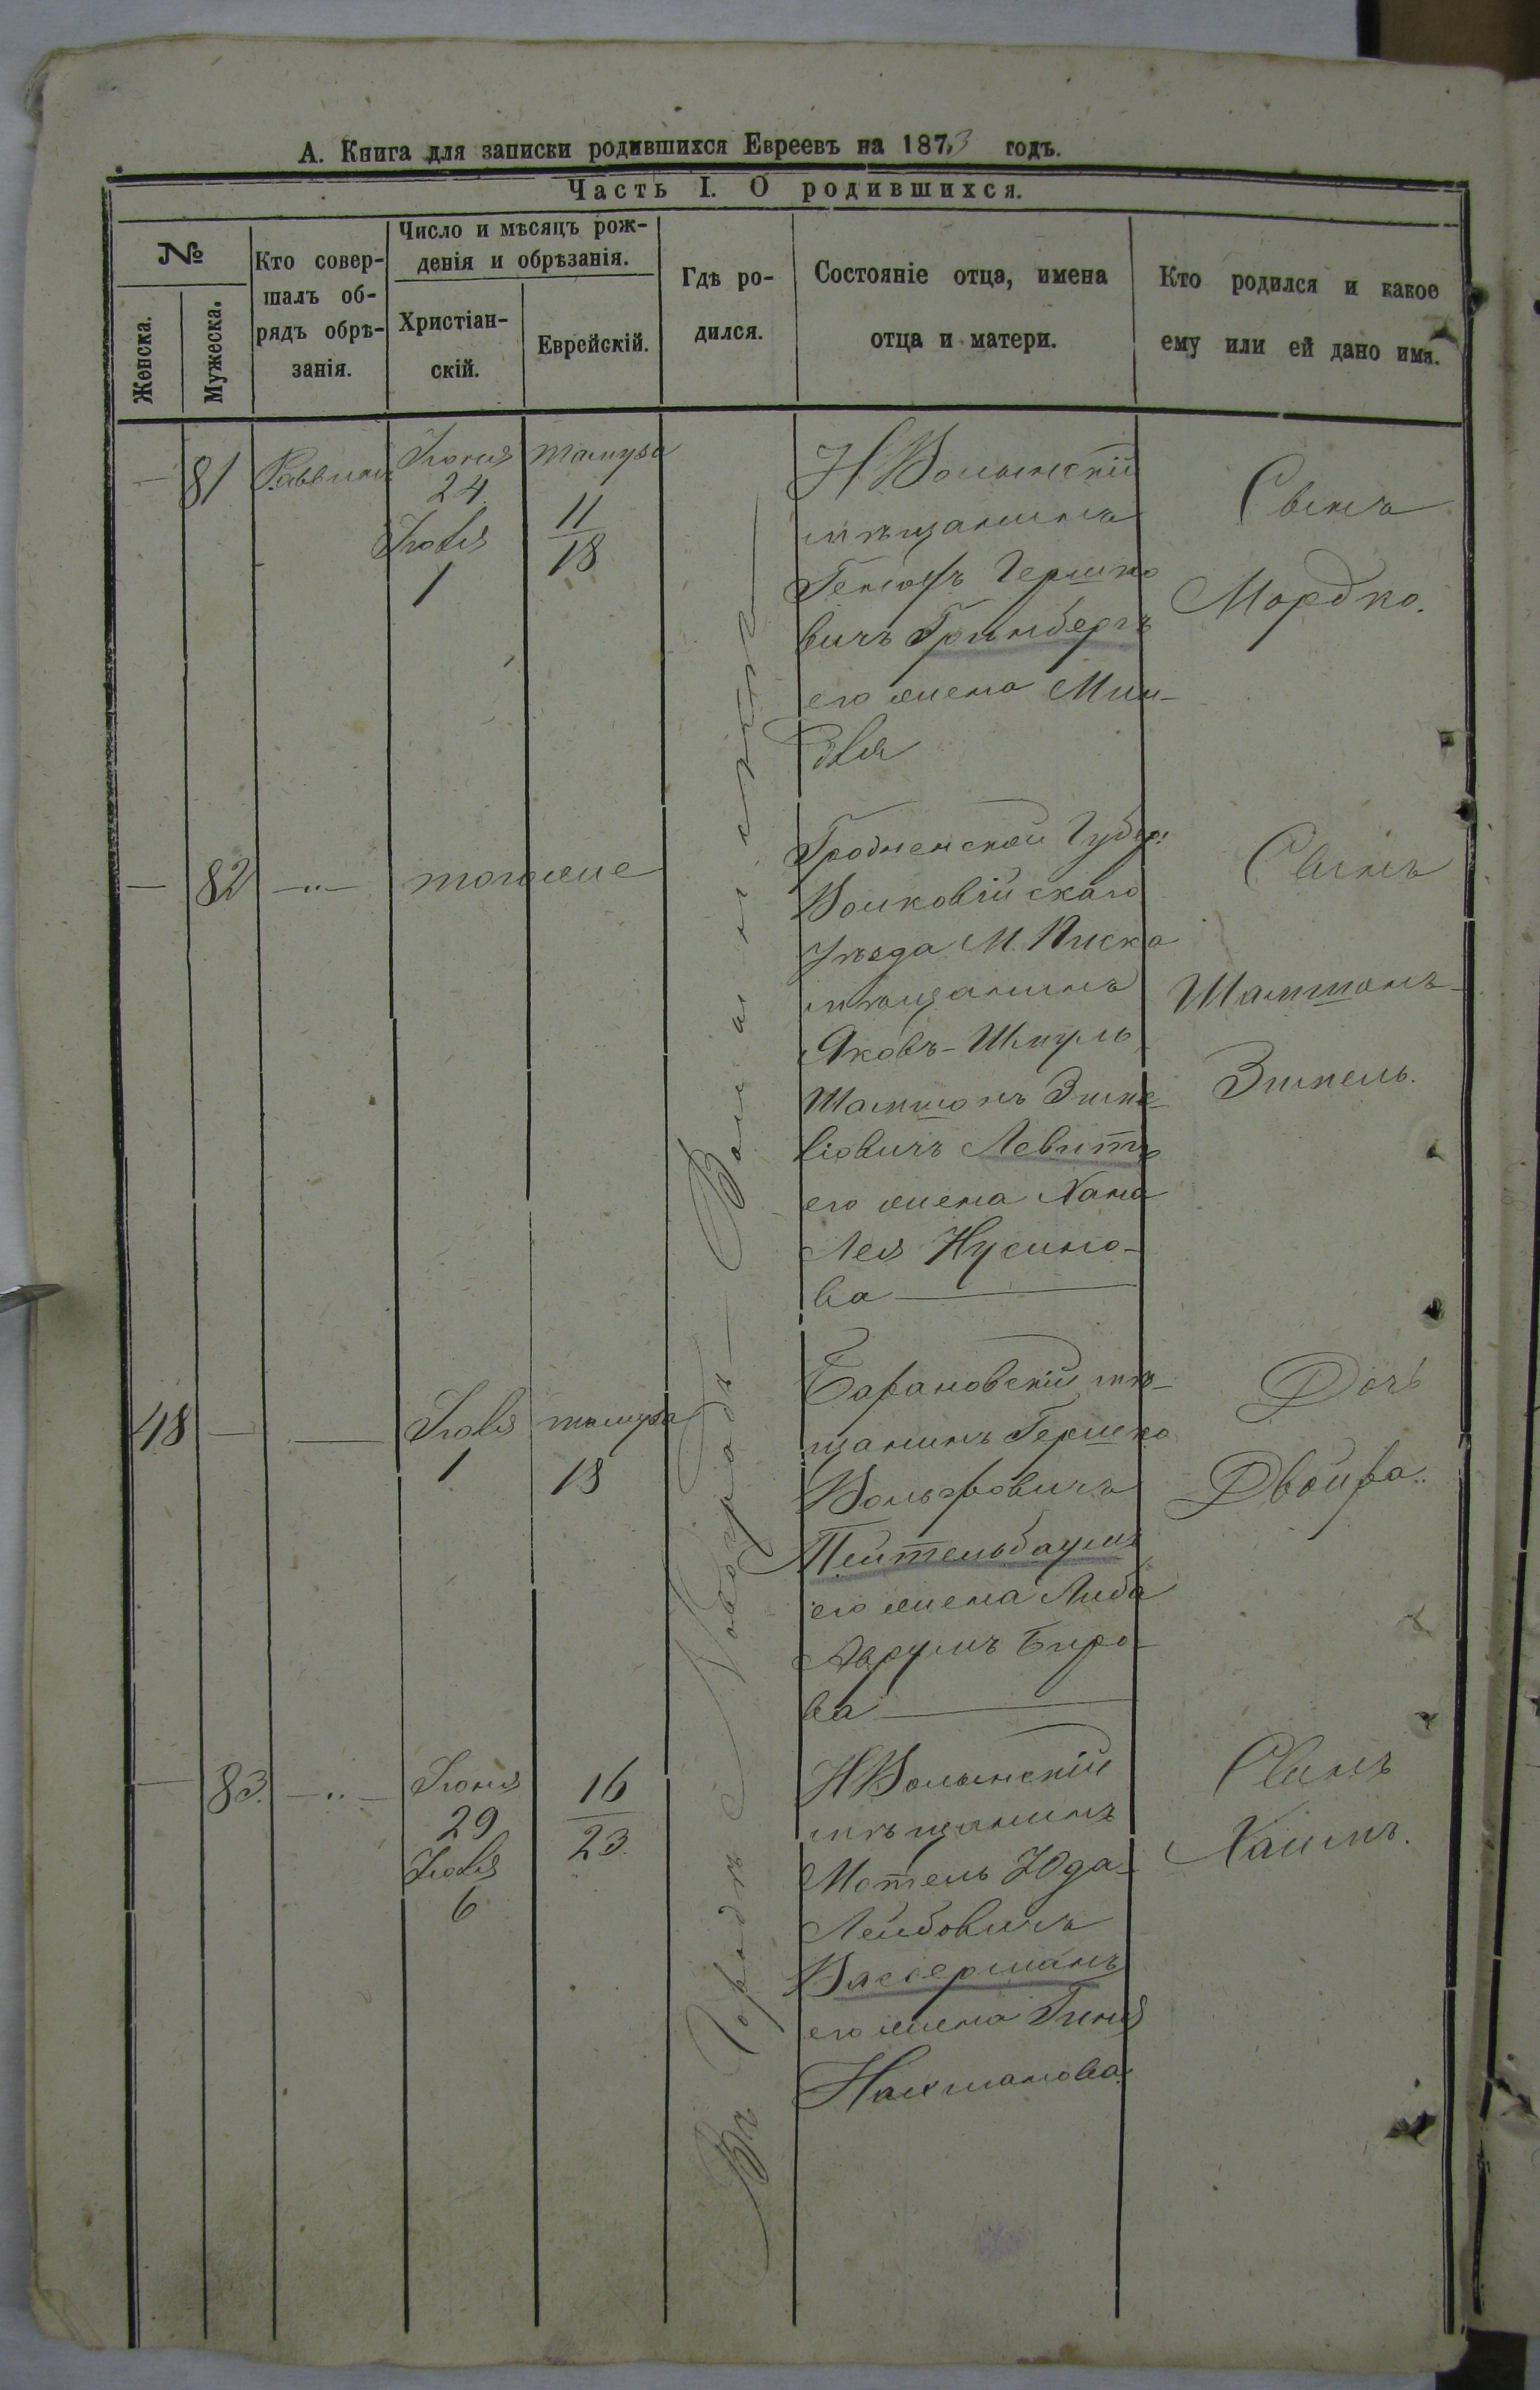 А. Книга для записки родившихся Евреевъ на 1873 годъ.
Часть I. О родившихся.
№
Женска.
Мужеска.
Кто совер-
шалъ об-
рядъ обрѣ-
занія.
Число и мѣсяцъ рож-
денія и обрѣзанія.
Христіан-
скій.
Еврейскій.
Гдѣ ро-
дился.
Состояніе отца, имена
отца и матери.
Кто родился и какое
ему или ей дано имя.
Въ Городѣ Новоградъ-Волынскѣ
— 81 Раввинъ
Іюня
24
Іюля
1
тамуза
11
18
Н Волынскій
мѣщанинъ
Генохъ Гершко
вичъ Гринбергъ
его жена Мин-
для
Сынъ
Мордко.
— 82 —"— тогоже
Гродненской Губер:
Волковійскаго
Уѣзда М. Писка
мѣщанинъ
Яковъ-Шмуль
Шамшонъ Зише-
ліовичъ Левитъ
его жена Хана
Лея Нусимо-
ва
Сынъ
Шамшонъ-
Зишель.
48 — —
Іюля
1
тамуза
18
Барановскій мѣ-
щанинъ Гершко
Вольфовичъ
Тейтельбаумъ
его жена Либа
Аврумъ Беро-
ва
Дочь
Двойра.
— 83. —"—
Іюня
29
Іюля
6
16
23.
Н Волынскій
мѣщанинъ
Мотель Юда-
Лейбовичъ
Вассерманъ
его жена Геня
Нахманова
Сынъ
Хаимъ.